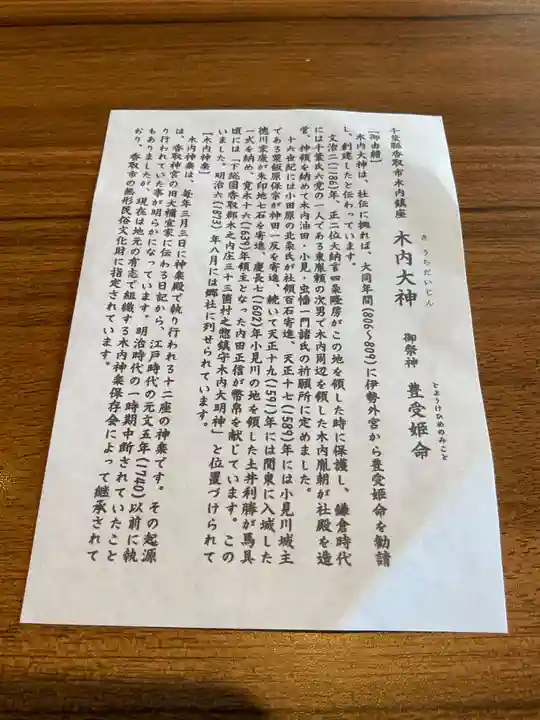 千葉縣香取市木内鎮座　木内大神　御祭神　豊受姫命
きうちだいじん
とようけひめのみこと
【御由緒】
木内大神は、社伝に拠れば、大同年間(806〜809)に伊勢外宮から豊受姫命を勧請
し、創建したと伝わっています。
文治二(1186)年、正二位大納言四条隆房がこの地を領した時に保護し、鎌倉時代
には千葉氏六党の一人である東胤頼の次男で木内周辺を領した木内胤朝が社殿を造
営、神領を納めて木内油田・小見・虫幡一門諸氏の祈願所に定めました。
十六世紀には小田原の北条氏が社領百石寄進、天正十七(1589)年には小見川城主
である粟飯原保宗が神田一反を寄進、続いて天正十九(1591)年には関東に入城した
徳川家康が朱印地七石を寄進、慶長七(1602)年小見川の地を領した土井利勝が馬具
一式を納め、寛永十六(1639)年領主となった内田正信が幣帛を献じています。この
頃には「下総国香取郡木之内庄三十三箇村之惣鎮守木内大明神」と位置づけられて
いました。明治六(1873)年八月には郷社に列せられています。
【木内神楽】
木内神楽は、毎年三月三日に神楽殿で執り行われる十二座の神楽です。その起源
は、香取神宮の旧大禰宜家に伝わる日記から、江戸時代の元文五年(1740)以前に執
り行われていた事が明らかになっています。明治時代の一時期中断されていたこと
もありましたが、現在は地元の有志で組織する木内神楽保存会によって継承されて
おり、香取市の無形民俗文化財に指定されています。